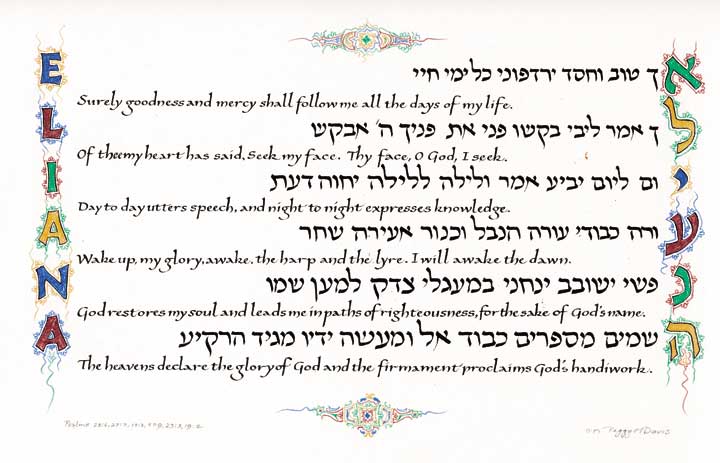 ELIANA
אך טוב וחסד ירדפוני כל ימי חיי
Surely goodness and mercy shall follow me all the days of my life.
לך אמר ליבי בקשו פני את פניך ה' אבקש
Of thee my heart has said, Seek my face. Thy face, O God, I seek.
יום ליום יביע אמר ולילה ללילה יחוה דעת
Day to day utters speech, and night to night expresses knowledge.
עורה כבודי עורה הנבל וכנור אעירה שחר
Wake up, my glory, awake, the harp and the lyre. I will awake the dawn.
נפשי ישובב ינחני במעגלי צדק למען שמו
God restores my soul and leads me in paths of righteousness, for the sake of God's name.
השמים מספרים כבוד אל ומעשה ידיו מגיד הרקיע
The heavens declare the glory of God and the firmament proclaims God's handiwork.
Psalms 23:6, 23:3, 19:2
Peggy H Davis